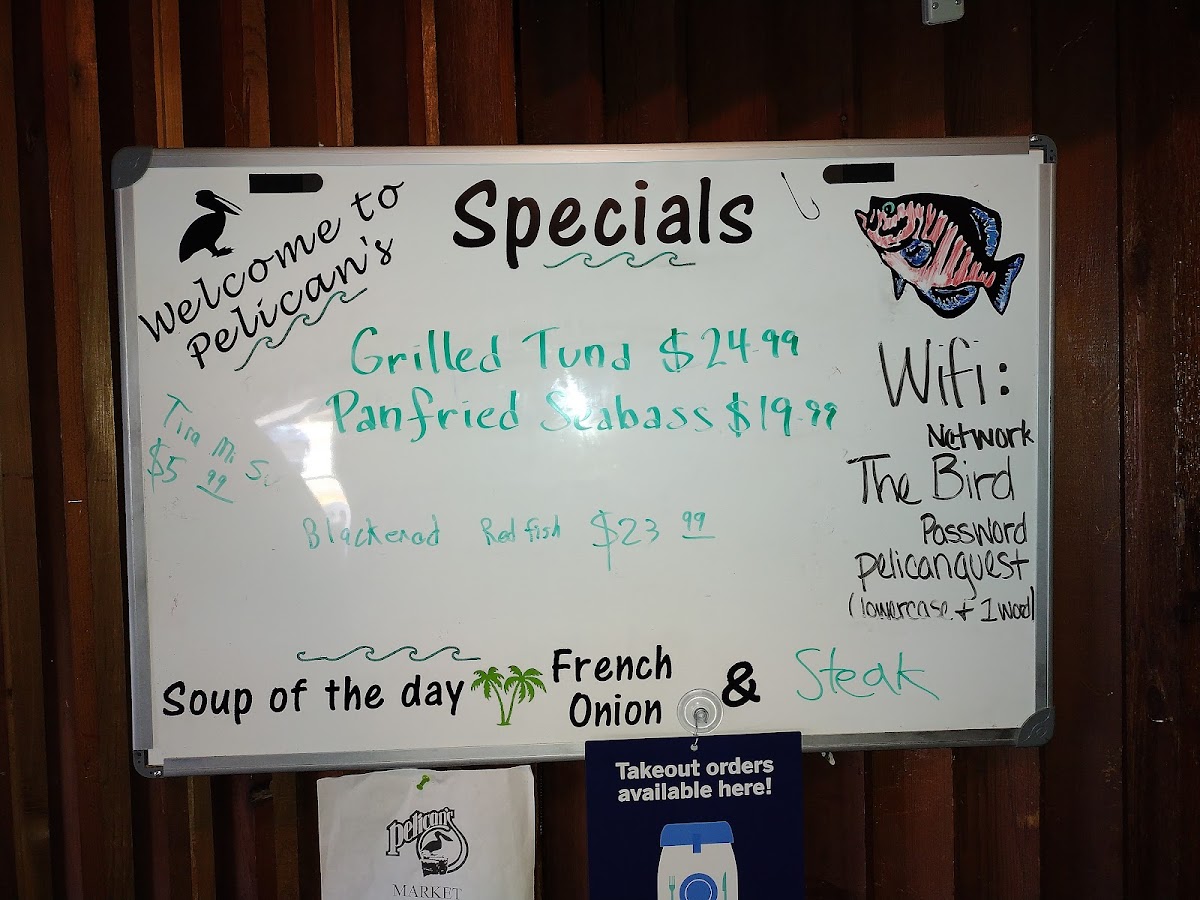 Welcome to
Pelican's
Specials
Grilled Tuna $24.99
Panfried Seabass $19.99
Tira Mi Su
$5 99
Blackened Redfish $23 99
Wifi:
Network
The Bird
Password
pelicanguest
(lowercase + 1 word)
Soup of the day
French
Onion
& Steak
Takeout orders
available here!
Pelican's
MARKET